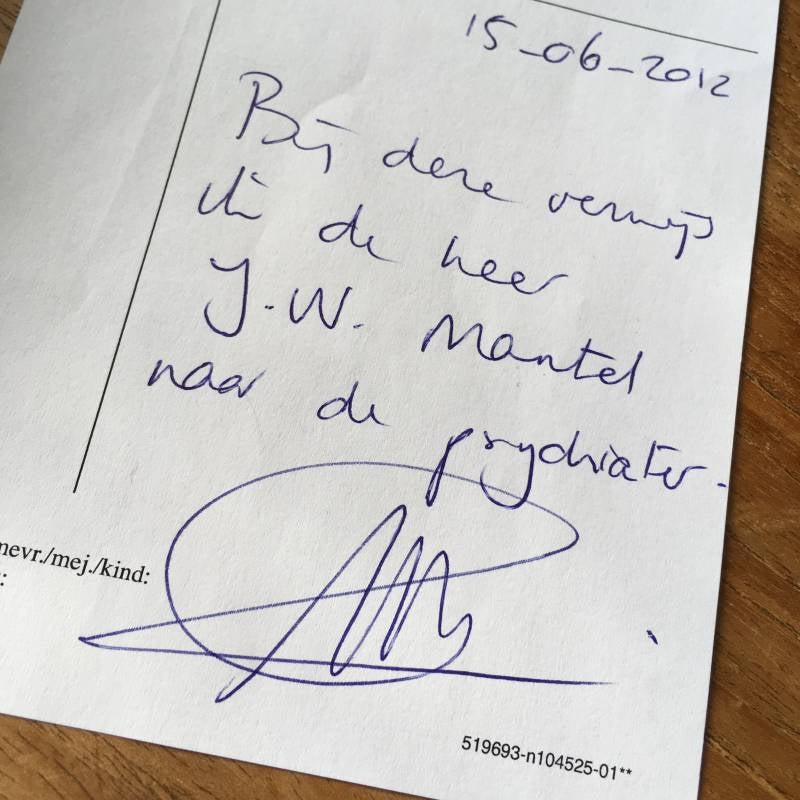 15-06-2012
Bij deze verwijs
ik de heer
J.W. Mantel
naar de psychiater.
mevr./mej./kind:
:
519693-n104525-01**